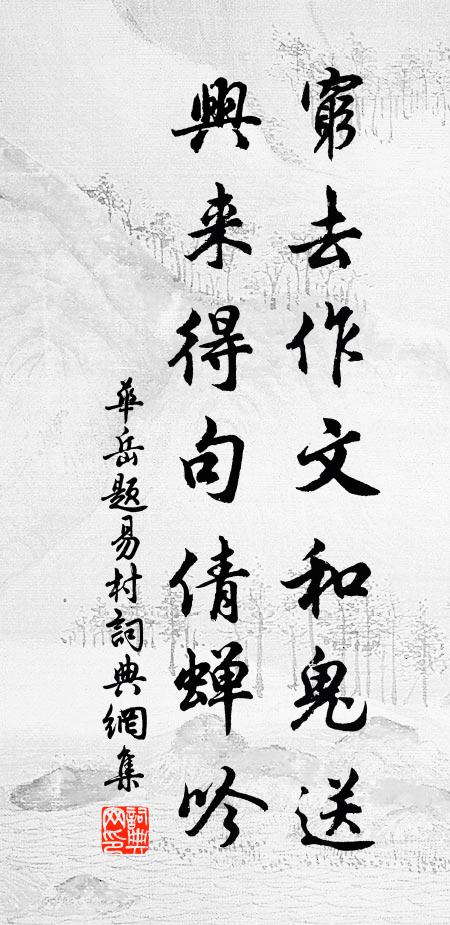 窮去作文和鬼送
興来得句倩蝉吟
華岳题易村詞典網集
詞典网印